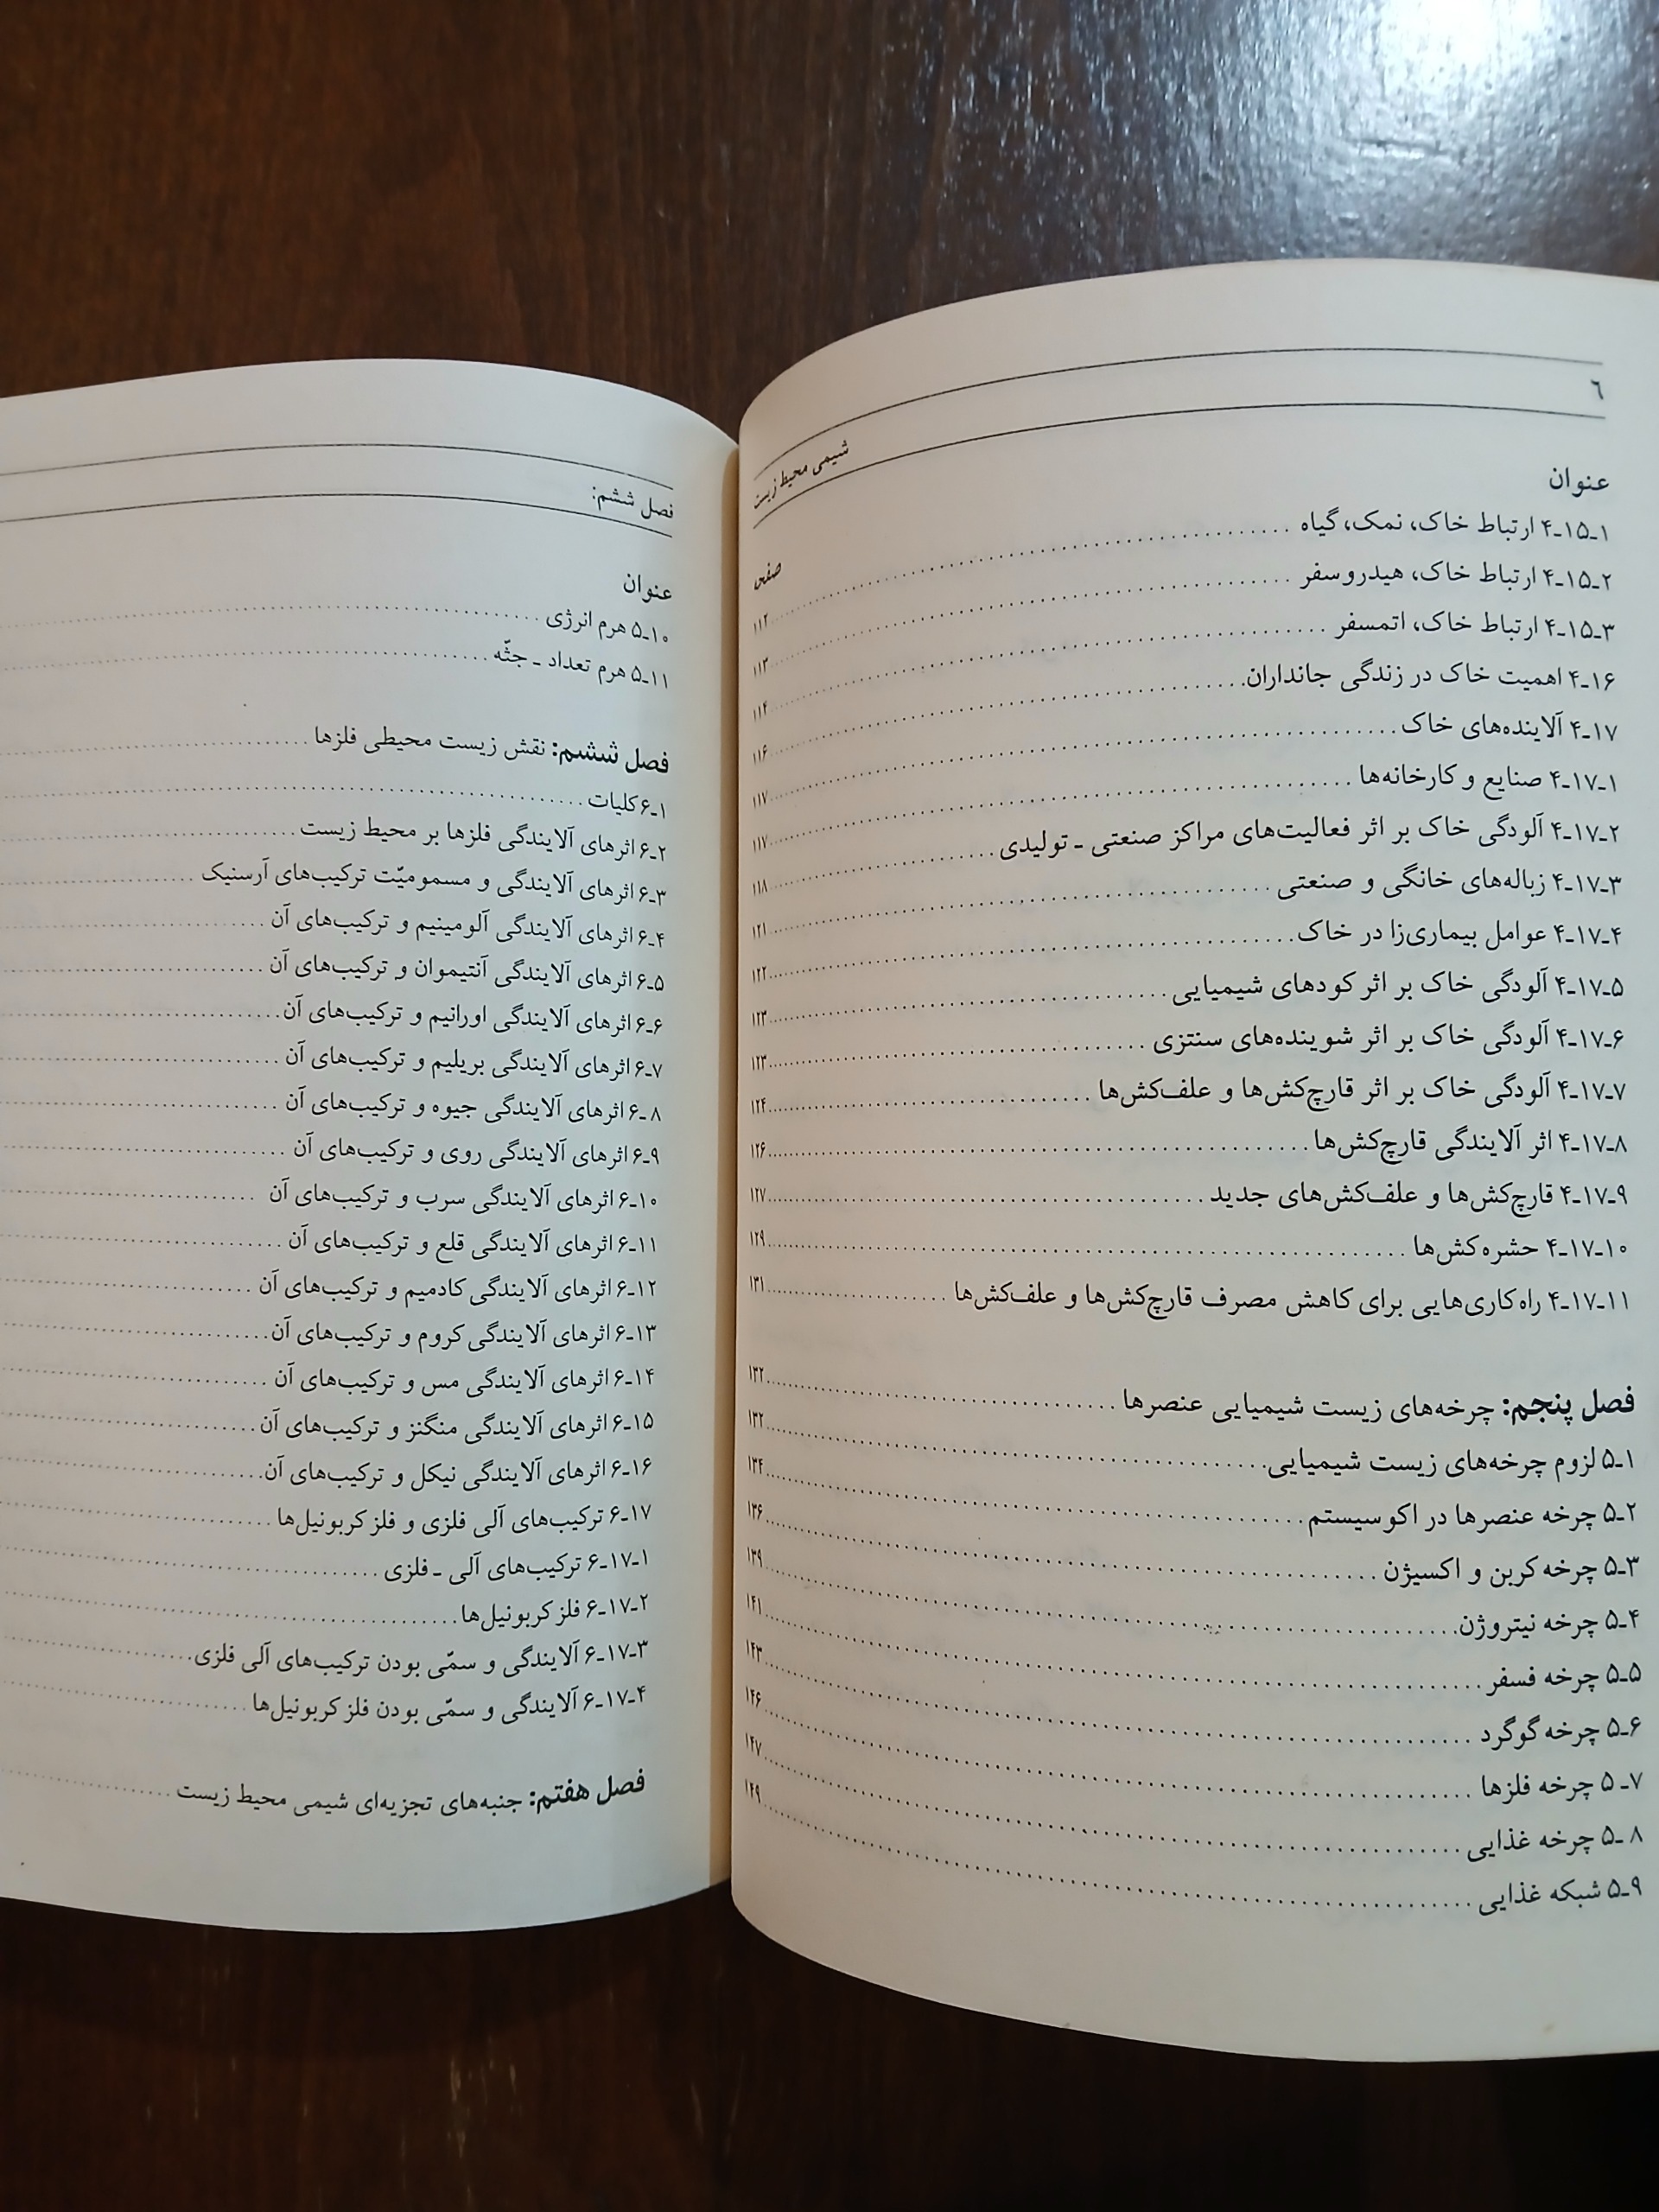 ۶
شیمی محیط زیست
عنوان
صفحه
۴ـ۱۵ـ۱ ارتباط خاک، نمک، گیاه ........ ۱۱۲
۴ـ۱۵ـ۲ ارتباط خاک، هیدروسفر ........ ۱۱۳
۴ـ۱۵ـ۳ ارتباط خاک، اتمسفر ........ ۱۱۴
۴ـ۱۶ اهمیت خاک در زندگی جانداران ........ ۱۱۶
۴ـ۱۷ آلاینده‌های خاک ........ ۱۱۷
۴ـ۱۷ـ۱ صنایع و کارخانه‌ها ........ ۱۱۷
۴ـ۱۷ـ۲ آلودگی خاک بر اثر فعالیت‌های مراکز صنعتی ـ تولیدی ........ ۱۱۸
۴ـ۱۷ـ۳ زباله‌های خانگی و صنعتی ........ ۱۲۱
۴ـ۱۷ـ۴ عوامل بیماری‌زا در خاک ........ ۱۲۲
۴ـ۱۷ـ۵ آلودگی خاک بر اثر کودهای شیمیایی ........ ۱۲۳
۴ـ۱۷ـ۶ آلودگی خاک بر اثر شوینده‌های سنتزی ........ ۱۲۳
۴ـ۱۷ـ۷ آلودگی خاک بر اثر قارچ‌کش‌ها و علف‌کش‌ها ........ ۱۲۴
۴ـ۱۷ـ۸ اثر آلایندگی قارچ‌کش‌ها ........ ۱۲۶
۴ـ۱۷ـ۹ قارچ‌کش‌ها و علف‌کش‌های جدید ........ ۱۲۷
۴ـ۱۷ـ۱۰ حشره‌کش‌ها ........ ۱۲۹
۴ـ۱۷ـ۱۱ راه‌کاری‌هایی برای کاهش مصرف قارچ‌کش‌ها و علف‌کش‌ها ........ ۱۳۱
فصل پنجم: چرخه‌های زیست شیمیایی عنصرها ........ ۱۳۲
۵ـ۱ لزوم چرخه‌های زیست شیمیایی ........ ۱۳۲
۵ـ۲ چرخه عنصرها در اکوسیستم ........ ۱۳۴
۵ـ۳ چرخه کربن و اکسیژن ........ ۱۳۶
۵ـ۴ چرخه نیتروژن ........ ۱۳۹
۵ـ۵ چرخه فسفر ........ ۱۴۱
۵ـ۶ چرخه گوگرد ........ ۱۴۳
۵ـ۷ چرخه فلزها ........ ۱۴۶
۵ـ۸ چرخه غذایی ........ ۱۴۷
۵ـ۹ شبکه غذایی ........ ۱۴۹
فصل ششم:
عنوان
۵ـ۱۰ هرم انرژی ........
۵ـ۱۱ هرم تعداد ـ جثّه ........
فصل ششم: نقش زیست محیطی فلزها ........
۶ـ۱ کلیات ........
۶ـ۲ اثرهای آلایندگی فلزها بر محیط زیست ........
۶ـ۳ اثرهای آلایندگی و مسمومیّت ترکیب‌های آرسنیک ........
۶ـ۴ اثرهای آلایندگی آلومینیم و ترکیب‌های آن ........
۶ـ۵ اثرهای آلایندگی آنتیموان و ترکیب‌های آن ........
۶ـ۶ اثرهای آلایندگی اورانیم و ترکیب‌های آن ........
۶ـ۷ اثرهای آلایندگی بریلیم و ترکیب‌های آن ........
۶ـ۸ اثرهای آلایندگی جیوه و ترکیب‌های آن ........
۶ـ۹ اثرهای آلایندگی روی و ترکیب‌های آن ........
۶ـ۱۰ اثرهای آلایندگی سرب و ترکیب‌های آن ........
۶ـ۱۱ اثرهای آلایندگی قلع و ترکیب‌های آن ........
۶ـ۱۲ اثرهای آلایندگی کادمیم و ترکیب‌های آن ........
۶ـ۱۳ اثرهای آلایندگی کروم و ترکیب‌های آن ........
۶ـ۱۴ اثرهای آلایندگی مس و ترکیب‌های آن ........
۶ـ۱۵ اثرهای آلایندگی منگنز و ترکیب‌های آن ........
۶ـ۱۶ اثرهای آلایندگی نیکل و ترکیب‌های آن ........
۶ـ۱۷ ترکیب‌های آلی فلزی و فلز کربونیل‌ها ........
۶ـ۱۷ـ۱ ترکیب‌های آلی ـ فلزی ........
۶ـ۱۷ـ۲ فلز کربونیل‌ها ........
۶ـ۱۷ـ۳ آلایندگی و سمّی بودن ترکیب‌های آلی فلزی ........
۶ـ۱۷ـ۴ آلایندگی و سمّی بودن فلز کربونیل‌ها ........
فصل هفتم: جنبه‌های تجزیه‌ای شیمی محیط زیست ........